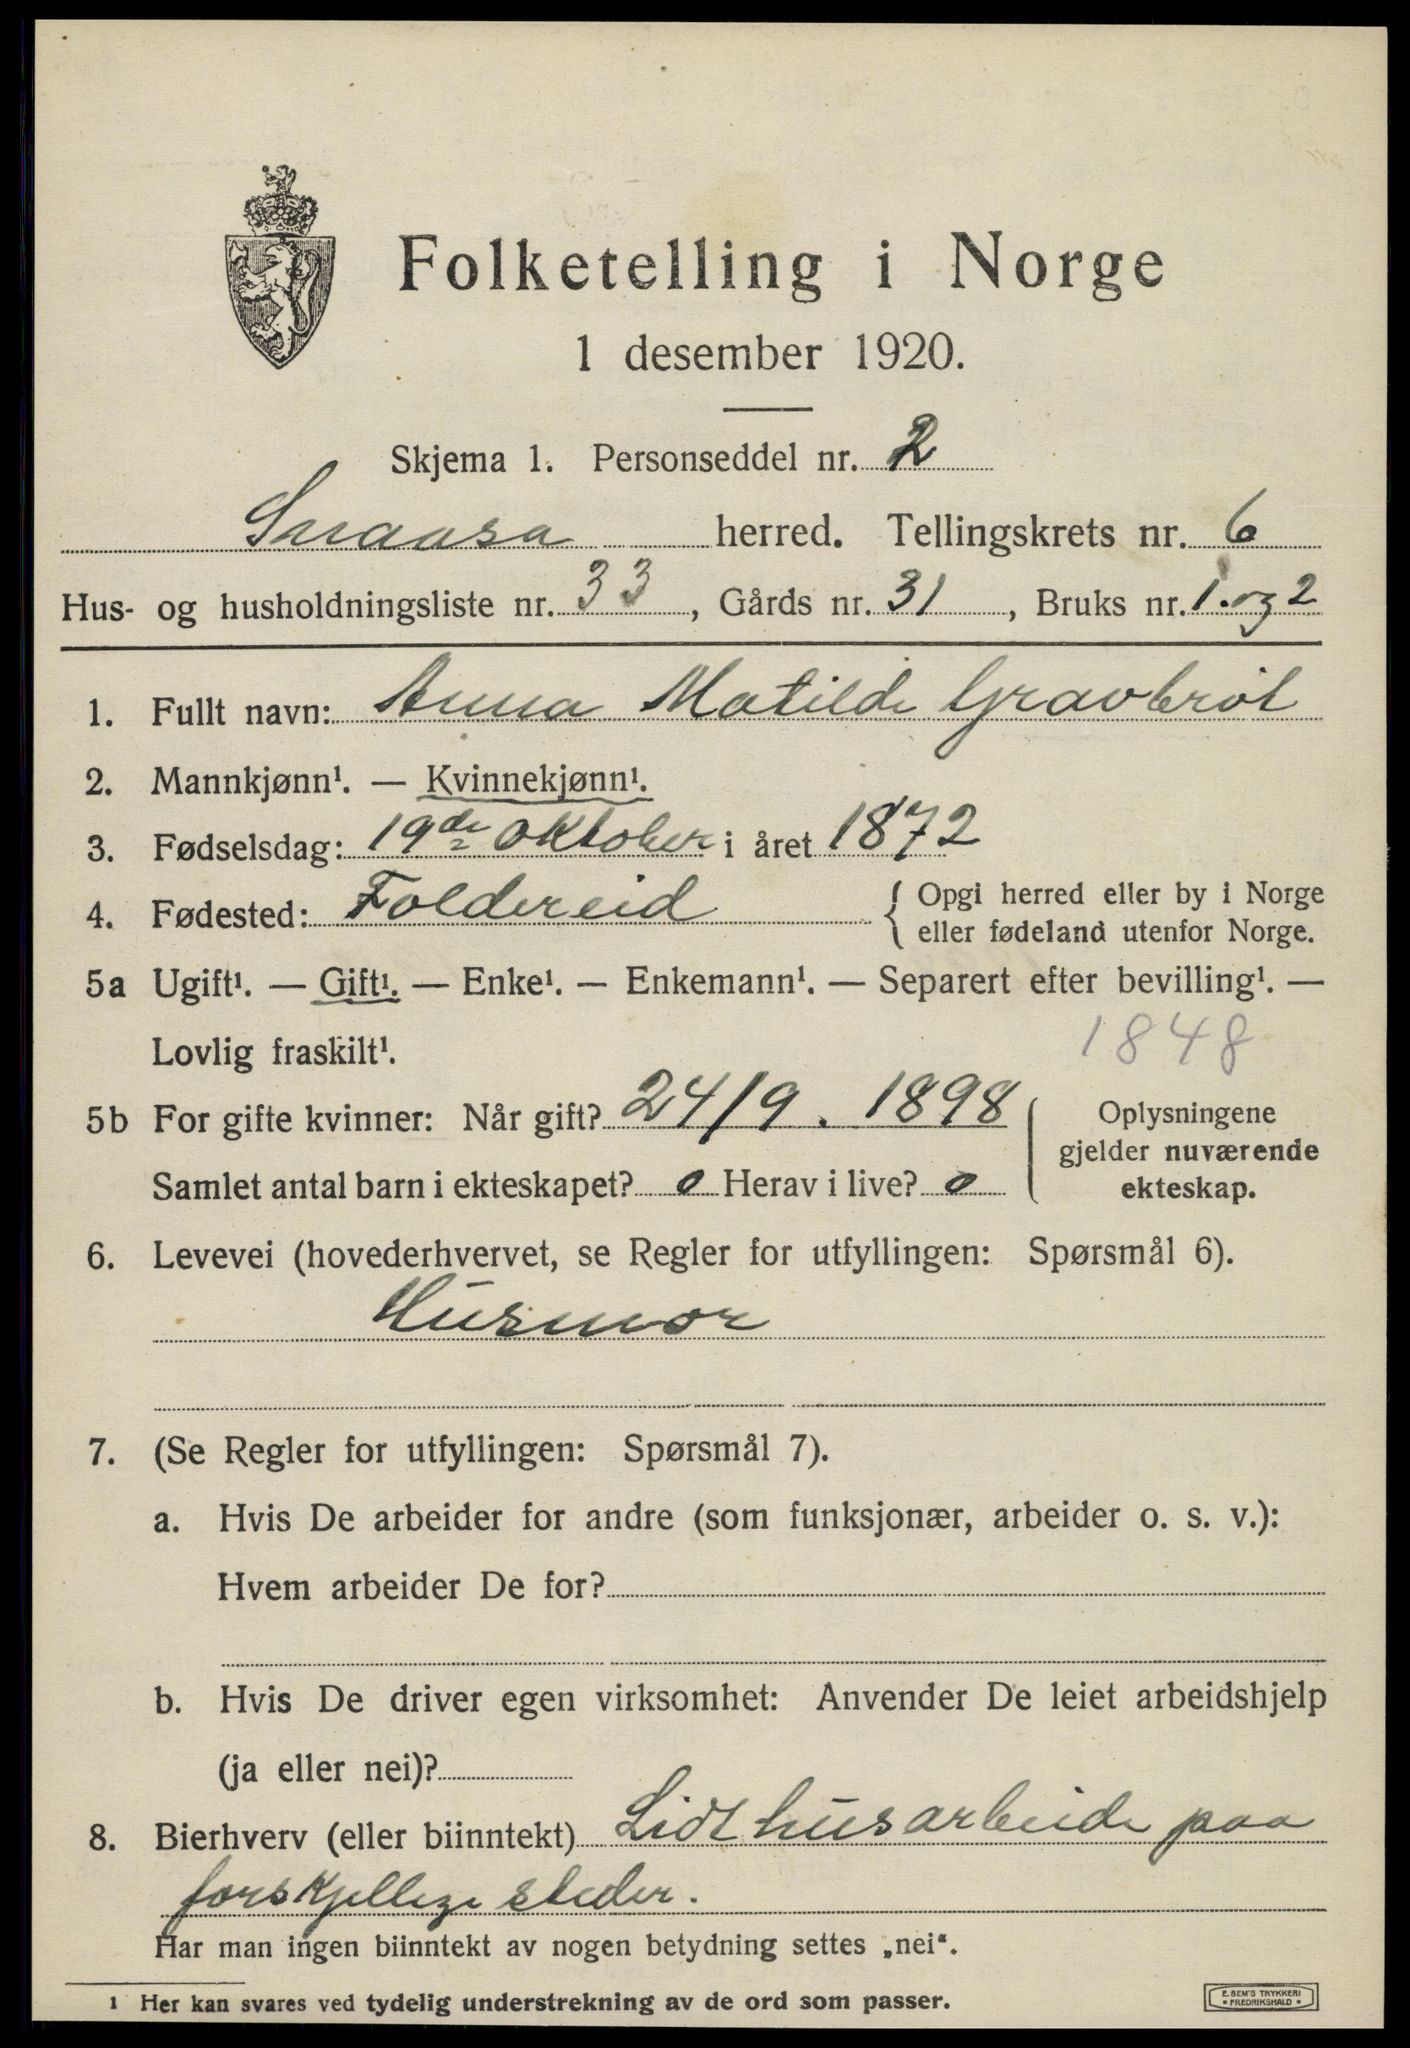 Folketelling i Norge
1 desember 1920.
Skjema 1. Personseddel nr. 2
Snaasa herred. Tellingskrets nr. 6
Hus- og husholdningsliste nr. 33, Gårds nr. 31, Bruks nr. 1. og 2
1. Fullt navn: Anna Matilde Gravbröt
2. Mannkjønn¹. — Kvinnekjønn¹.
3. Fødselsdag: 19de oktober i året 1872
4. Fødested: Foldereid { Opgi herred eller by i Norge
eller fødeland utenfor Norge.
5a Ugift¹. — Gift¹. — Enke¹. — Enkemann¹. — Separert efter bevilling¹. —
Lovlig fraskilt¹. 1848
5b For gifte kvinner: Når gift? 24/9. 1898 Oplysningene
gjelder nuværende
Samlet antal barn i ekteskapet? 0 Herav i live? 0 ekteskap.
6. Levevei (hovederhvervet, se Regler for utfyllingen: Spørsmål 6).
Husmor
7. (Se Regler for utfyllingen: Spørsmål 7).
a. Hvis De arbeider for andre (som funksjonær, arbeider o. s. v.):
Hvem arbeider De for?
b. Hvis De driver egen virksomhet: Anvender De leiet arbeidshjelp
(ja eller nei)?
8. Bierhverv (eller biinntekt) Lidt husarbeide paa
forskjellige steder.
Har man ingen biinntekt av nogen betydning settes „nei“.
¹ Her kan svares ved tydelig understrekning av de ord som passer.
E. SEM'S TRYKKERI
• FREDRIKSHALD •